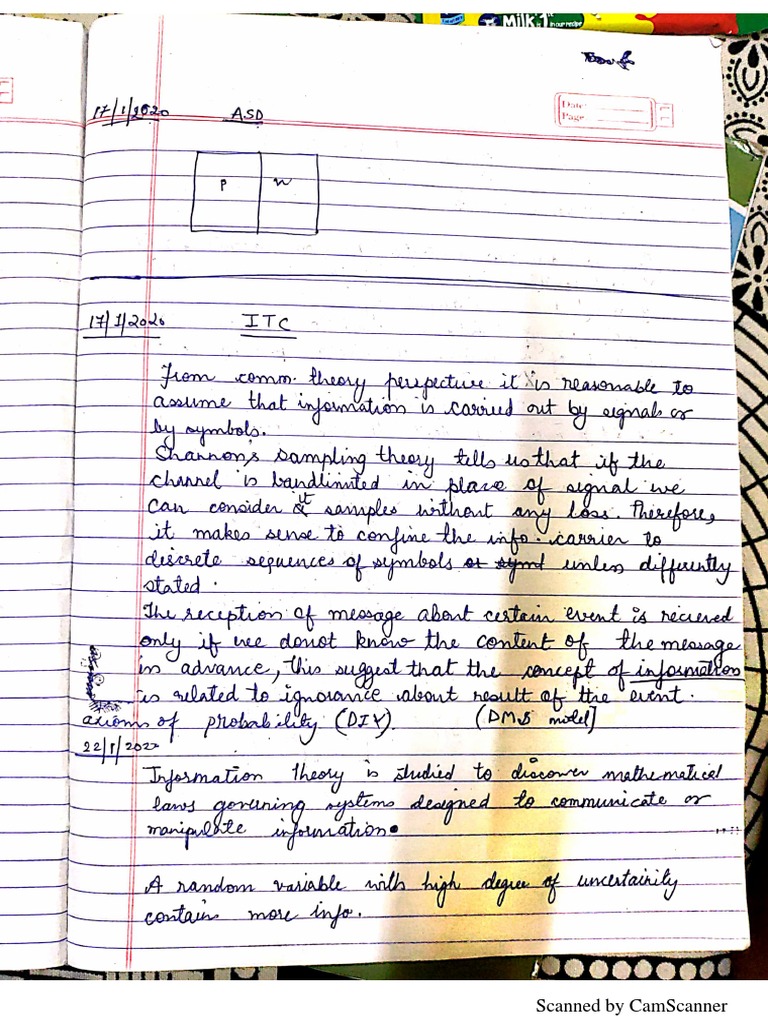 Milk in 1 in our recipe
17/1/2020 ASD
Date:
Page
P n
17/1/2020 ITC
From comm. theory perspective it is reasonable to
assume that information is carried out by signals or
by symbols.
Shannon's sampling theory tells us that if the
channel is bandlimited in place of signal we
can consider it samples without any loss. Therefore,
it makes sense to confine the info. carrier to
discrete sequences of symbols or symb unless differently
stated.
The reception of message about certain event is recieved
only if we donot know the content of the message
in advance, this suggest that the concept of information
is related to ignorance about result of the event.
axioms of probability (DIY) (DMS model]
22/1/2020
Information theory is studied to discover mathematical
laws governing systems designed to communicate or
manipulate information.
A random variable with high degree of uncertainity
contains more info.
Scanned by CamScanner